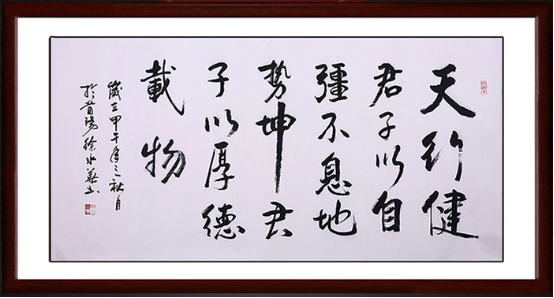 天行健
君子以自
彊不息地
勢坤君
子以厚德
載物
歲在甲午年之秋月
於陽徐永书